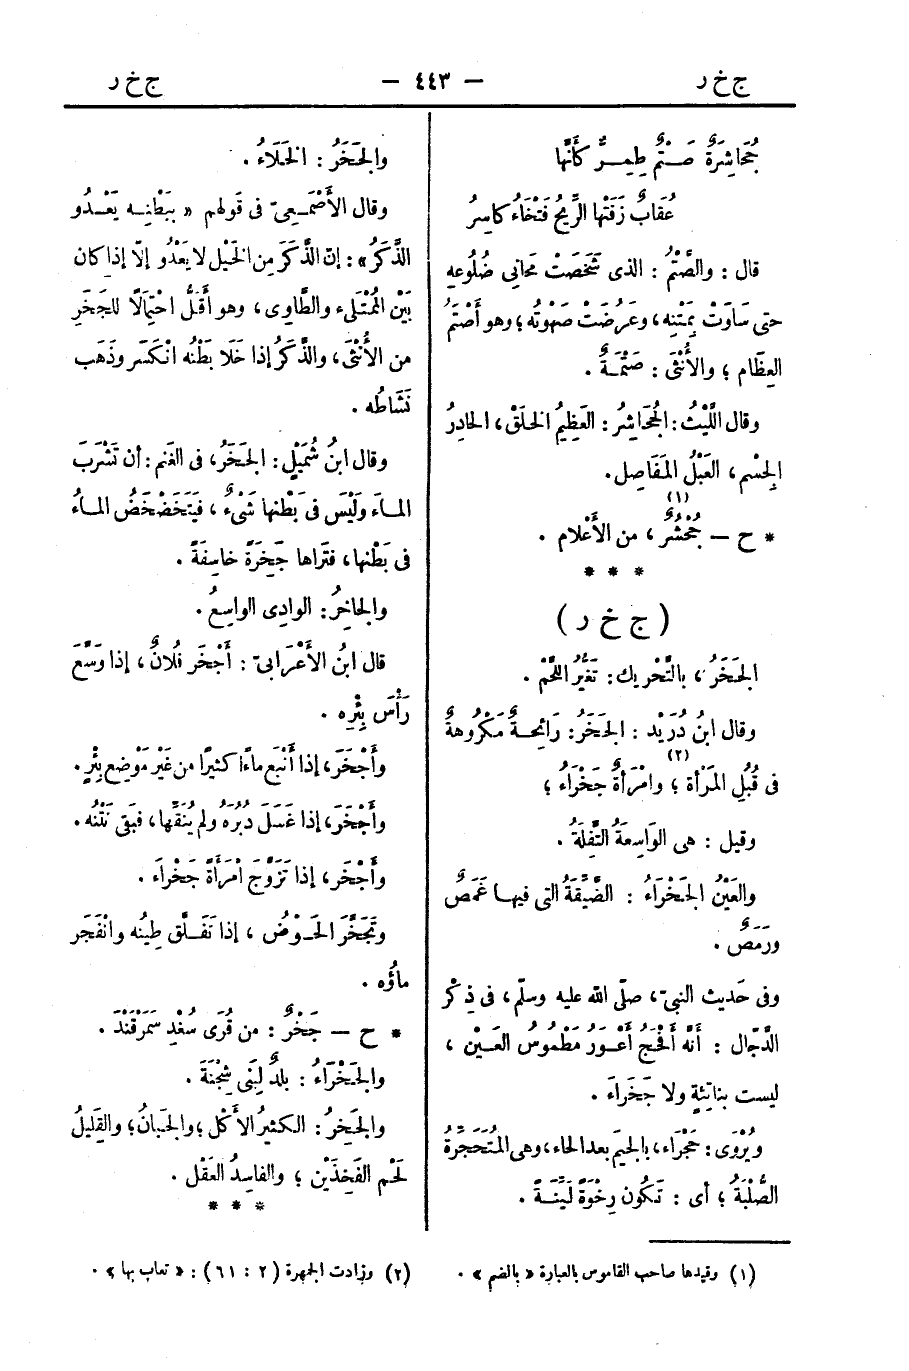 ج خ ر
— ٤٤٣ —
ج خ ر
جُحَاشِرَةٌ صَـتْمٌ طِمِـرٌّ كأَنَّها
عُقَابٌ زَفَتْها الرِّيحُ فَتْخَاءُ كاسِرُ
قال : والصَّتْمُ : الذى شَخَصَتْ مَحانِى ضُلُوعِهِ
حتى سَاوَتْ بمَتْنِه ، وعَرُضَتْ صَهْوتُه ؛ وهو أَصْتَمُ
العِظَام ؛ والأُنْثَى : صَتْمَـةٌ .
وقال اللَّيْثُ : الجُحَاشِرُ : العَظِيمُ الخَلْقِ ، الحادِرُ
الجِسْم ، العَبْلُ المَفَاصِل .
* ح — جُحْشُرٌ (١) ، من الأَعْلام .
* * *
( ج خ ر )
الجَخَرُ ، بالتَّحْرِيك : تَغَيُّرُ اللَّحْمِ .
وقال ابنُ دُرَيْد : الجَخَرُ : رَائِحـةٌ مَكْرُوهةٌ
فى قُبُلِ المَرْأَة (٢) ؛ وامْرَأَةٌ جَخْرَاءُ ؛
وقيل : هى الوَاسِعَةُ التَّفِلَةُ .
والعَيْنُ الجَخْرَاءُ : الضَّيِّقَةُ التى فيهـا غَمَصٌ
ورَمَصٌ .
وفى حَديث النبىّ ، صلّى الله عليه وسلّم ، فى ذِكْر
الدَّجّال : أَنَّه أَفْحَجُ أَعْـوَرُ مَطْمُوسُ العَـيْنِ ،
ليست بناتِئةٍ ولا جَخْراءَ .
ويُرْوَى : حَجْرَاء ، بالجيم بعد الحاء ، وهى المُتَحَجِّرَةُ
الصُّلْبَةُ ؛ أى : تَكُون رِخْوَةً لَيِّنَـةً .
والجَخَرُ : الخَلَاءُ .
وقال الأَصْمَـعِىّ فى قَولهم « ببَطْنِـه يَعْـدُو
الذَّكَرُ » : إنّ الذَّكَرَ مِن الخَيْل لا يَعْدُو إلّا إذا كان
بَيْن المُمْتَلِىء والطَّاوِى ، وهو أَقَلُّ احْتِمالًا للجَخَرِ
من الأُنْثَى ، والذَّكَرُ إذا خَلَا بَطْنُه انْكَسَر وذَهَب
نَشَاطُه .
وقال ابنُ شُمَيْلٍ : الجَخَرُ ، فى الغَنَم : أن تَشْرَبَ
المـاءَ ولَيْسَ فى بَطْنها شَىْءٌ ، فيَتَخَضْخَضُ المـاءُ
فى بَطْنِها ، فتَراها جَخِرَةً خاسِفَةً .
والجاخِرُ : الوادِى الواسِعُ .
قال ابنُ الأَعْرَابىّ : أَجْخَر فُلانٌ ، إذا وَسَّعَ
رَأْسَ بِئْرِه .
وأَجْخَرَ ، إذا أَنْبَع ماءًا كثيرًا من غَيْر مَوْضِع بِئْرٍ .
وأَجْخَرَ ، إذا غَسَلَ دُبُرَهُ ولم يُنَقِّها ، فبَقِى نَتْنُه .
وأَجْخَر ، إذا تَزَوَّجَ امْرَأَةً جَخْراءَ .
وتَجَخَّرَ الحَـوْضُ ، إذا تَفَـلَّق طِينُه وانْفَجَر
ماؤُه .
* ح — جَخْرٌ : من قُرَى سُغْدِ سَمَرْقَنْدَ .
والجَخْرَاءُ : بلدٌ لِبَنِى شِجْنَةَ .
والجَخِرُ : الكثيرُ الأَكْل ؛ والجَبَانُ ؛ والقَلِيلُ
لَحْمِ الفَخِذَيْن ؛ والفاسِدُ العَقْل .
* * *
(١) وقيدها صاحب القاموس بالعبارة « بالضم » .
(٢) وزادت الجمهرة ( ٢ : ٦١ ) : « تعاب بها » .